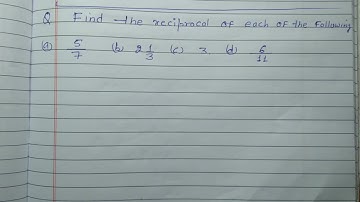 Q Find the reciprocal of each of the following
(a) 5/7 (b) 2 1/3 (c) x (d) 6/11